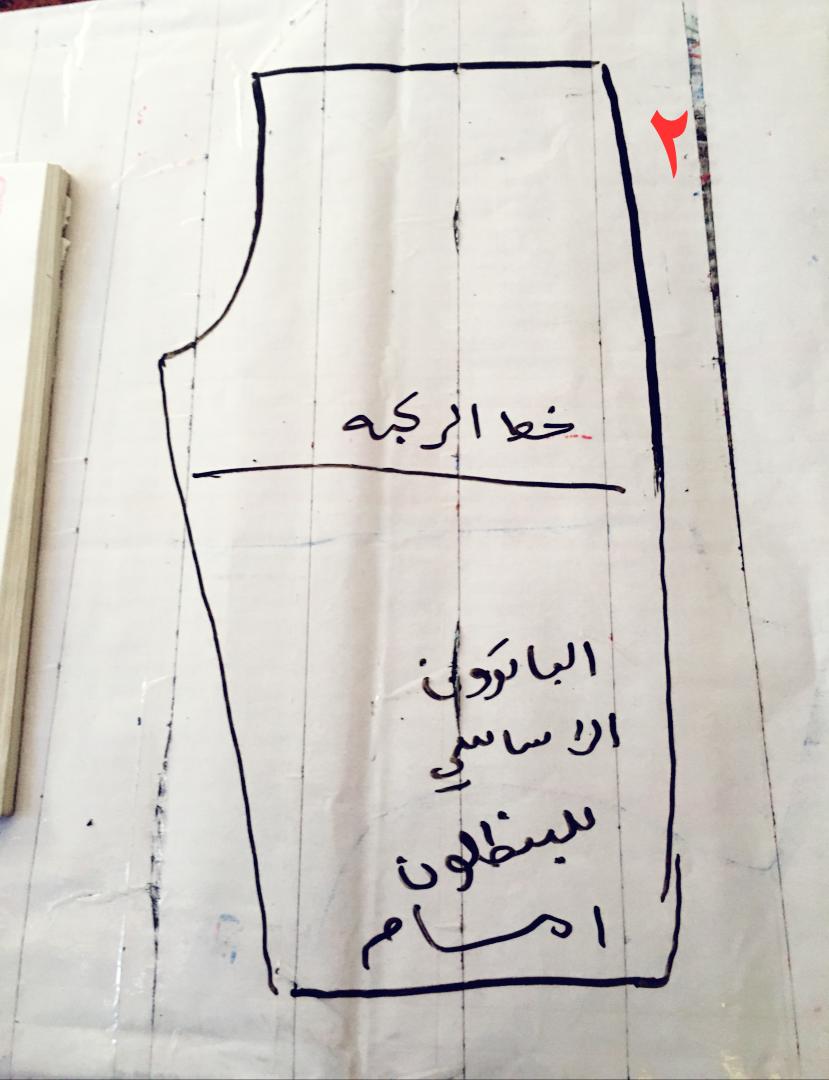 ٢
خط الركبه
الباترون
الاساسي
للبنطلون
امام